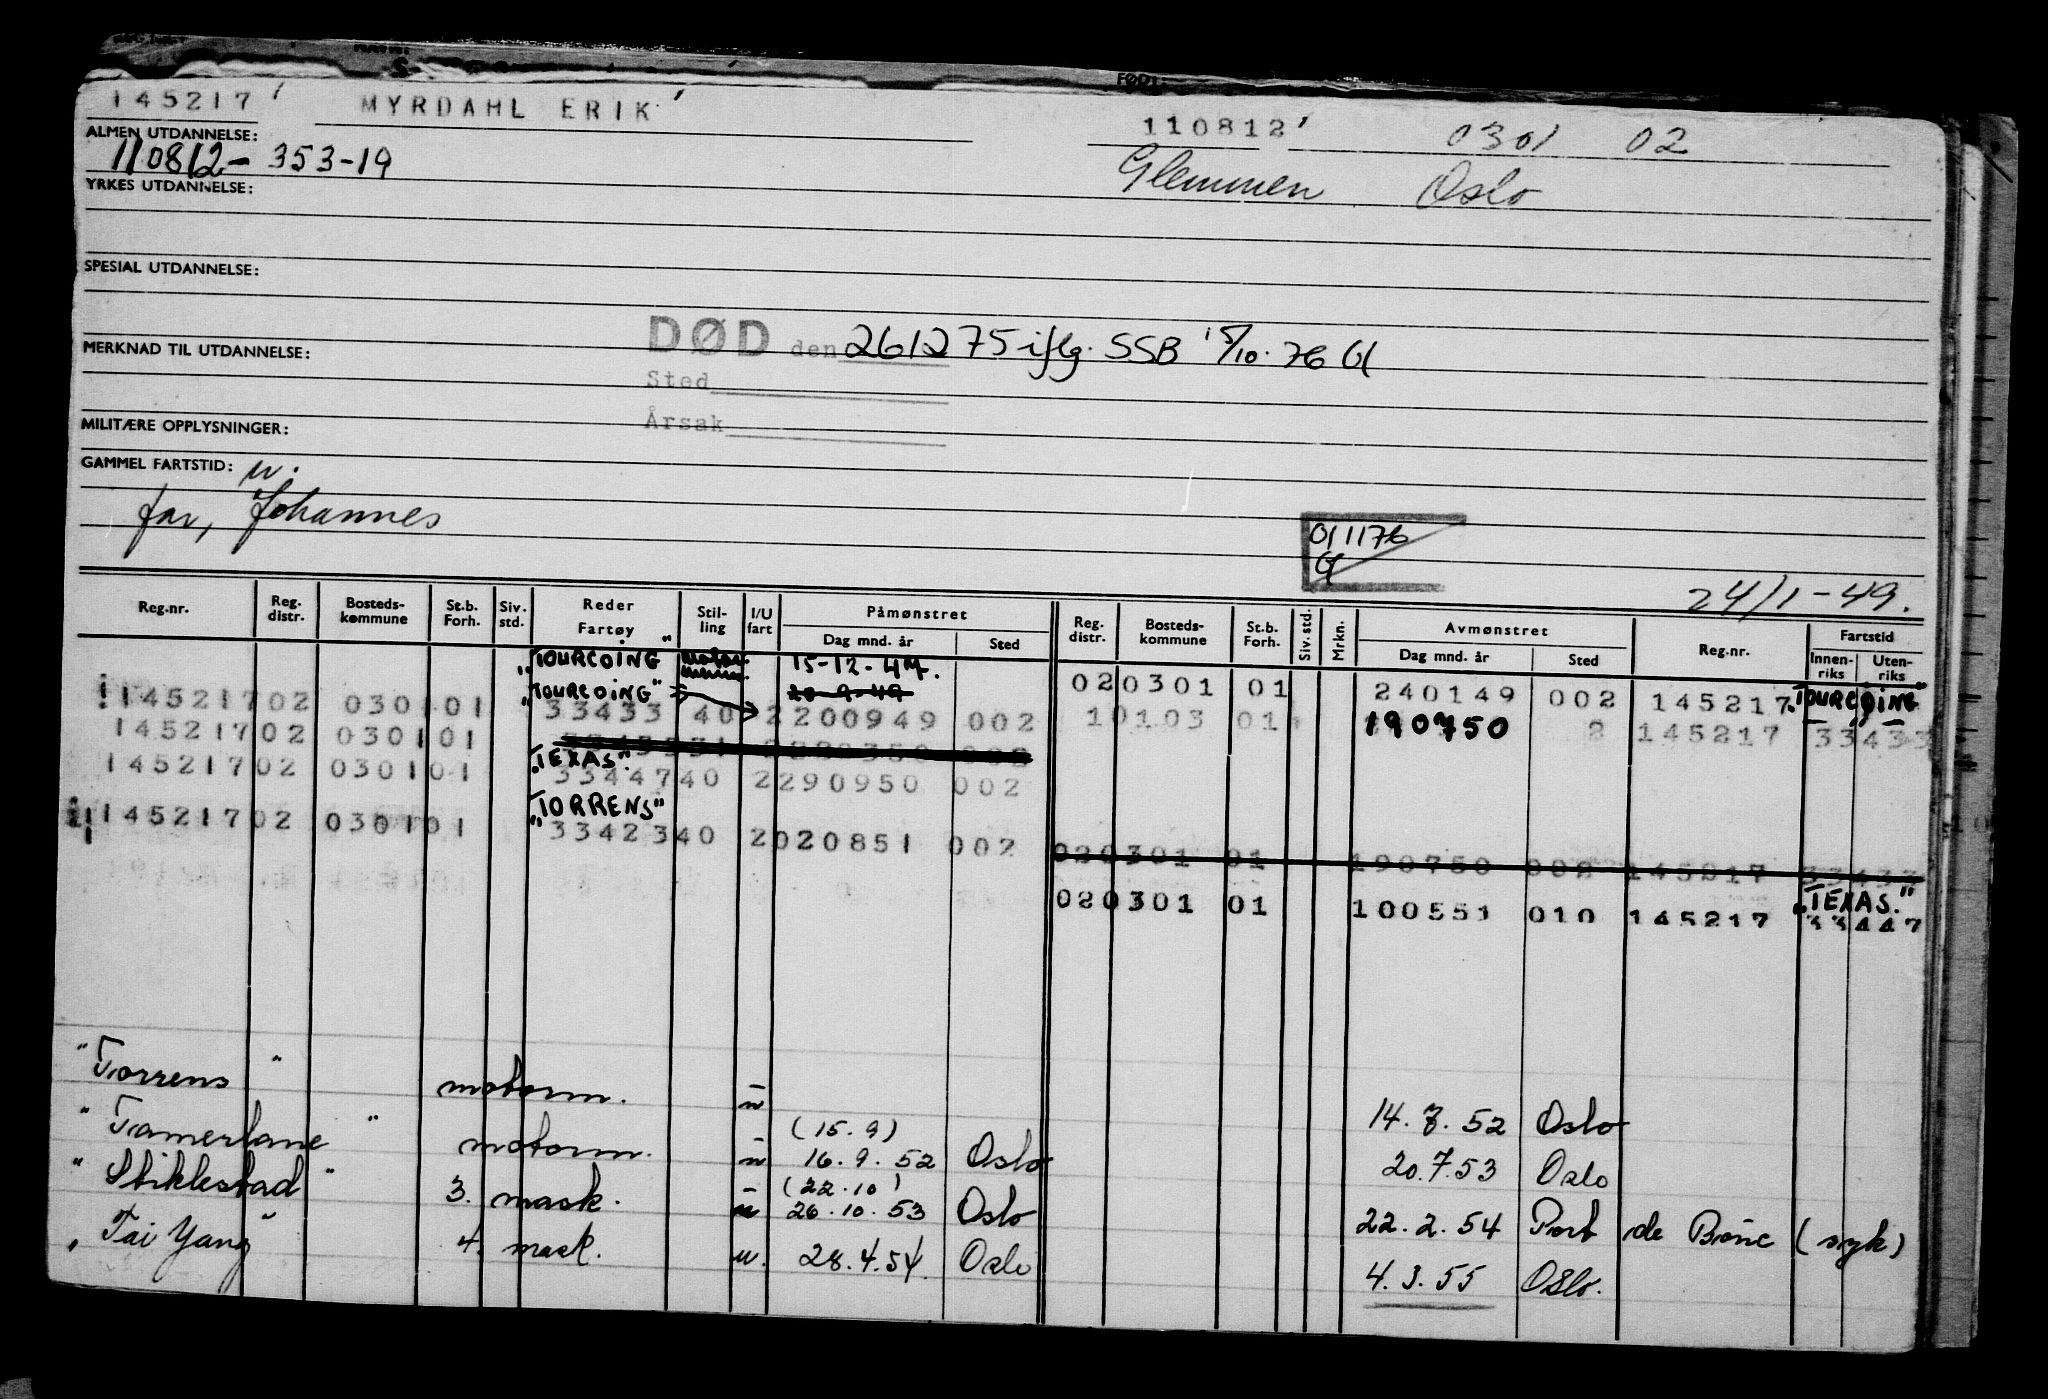 FØDT:
145217 MYRDAHL ERIK 110812 0301 02
ALMEN UTDANNELSE:
110812-35319 Glemmen Oslo
YRKES UTDANNELSE:
SPESIAL UTDANNELSE:
DØD den 261275 iflg. SSB 15/10.76
MERKNAD TIL UTDANNELSE:
Sted
MILITÆRE OPPLYSNINGER:
Årsak
GAMMEL FARTSTID: u.
far, Johannes
011176
24/1-49.
Reg.nr. Reg. distr. Bosteds-kommune St.b. Forh. Siv. std. Reder Fartøy Stil-ling I/U fart Påmønstret Reg. distr. Bosteds-kommune St.b. Forh. Siv. std. Mrkn. Avmønstret Reg.nr. Fartstid
Dag mnd. år Sted Dag mnd. år Sted Innen-riks Uten-riks
"TOURCOING" 15-12-47.
"TOURCOING" 20-9-49 020301 01 240149 002 145217 "TOURCOING"
145217 02 0301 01 33433 40 2 200949 002 10103 01 190750 2 145217 33433
145217 02 0301 01
"TEXAS"
145217 02 0301 01 33447 40 2 290950 002
"TORRENS"
145217 02 0301 01 33423 40 2 020851 002
020301 01 190750 002 145217 33433
020301 01 100551 010 145217 "TEXAS." 33447
"Torrens" motorm. u 14.7.52 Oslo
"Tamerlane" motorm. u (15.9) 16.9.52 Oslo 20.7.53 Oslo
"Stiklestad" 3. mask. u (22.10) 26.10.53 Oslo 22.2.54 Port de Bouc (syk)
"Tai Yang" 4. mask. u. 28.4.54. Oslo 4.3.55 Oslo.